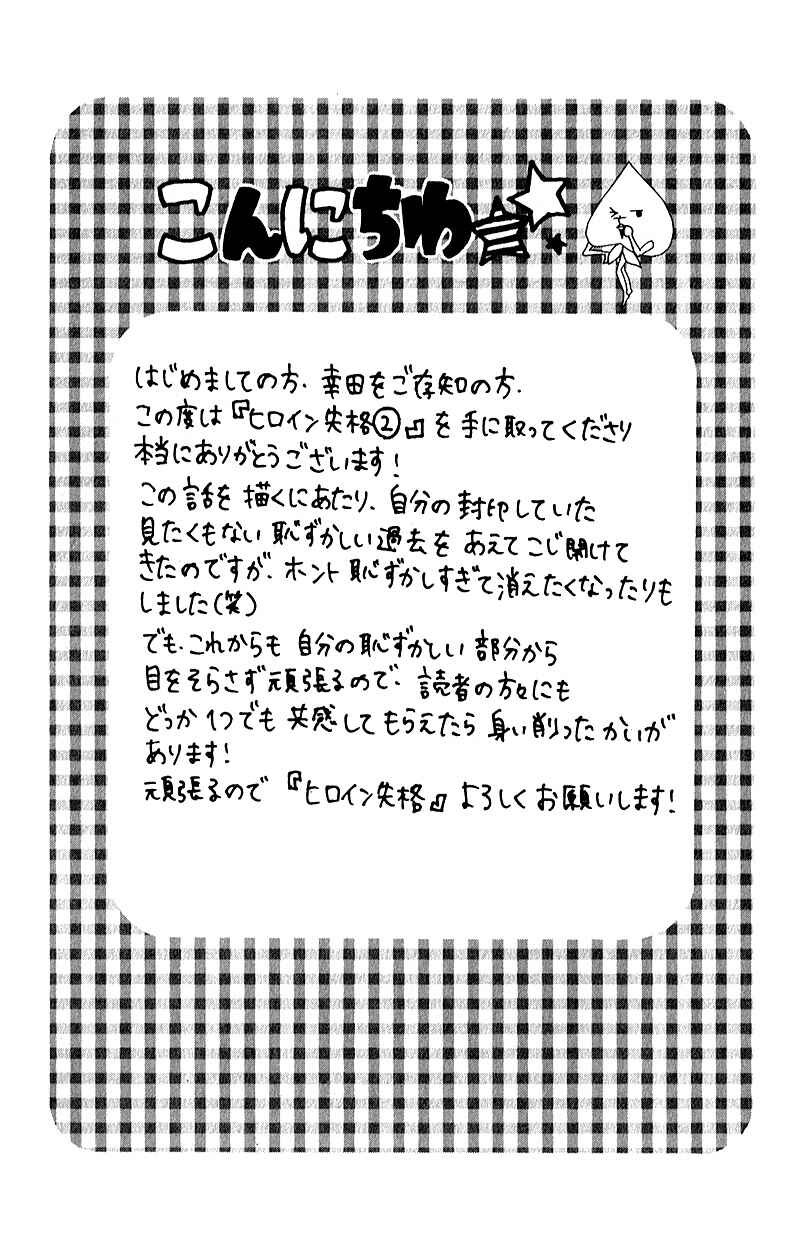 こんにちわ☆☆★
はじめましての方、幸田をご存知の方、
この度は『ヒロイン失格②』を手に取ってくださり
本当にありがとうございます!
この話を描くにあたり、自分の封印していた
見たくもない恥ずかしい過去をあえてこじ開けて
きたのですが、ホント恥ずかしすぎて消えたくなったりも
しました(笑)
でも、これからも自分の恥ずかしい部分から
目をそらさず頑張るので、読者の方々にも
どっか1つでも共感してもらえたら身い削ったかいが
あります!
頑張るので『ヒロイン失格』よろしくお願いします!